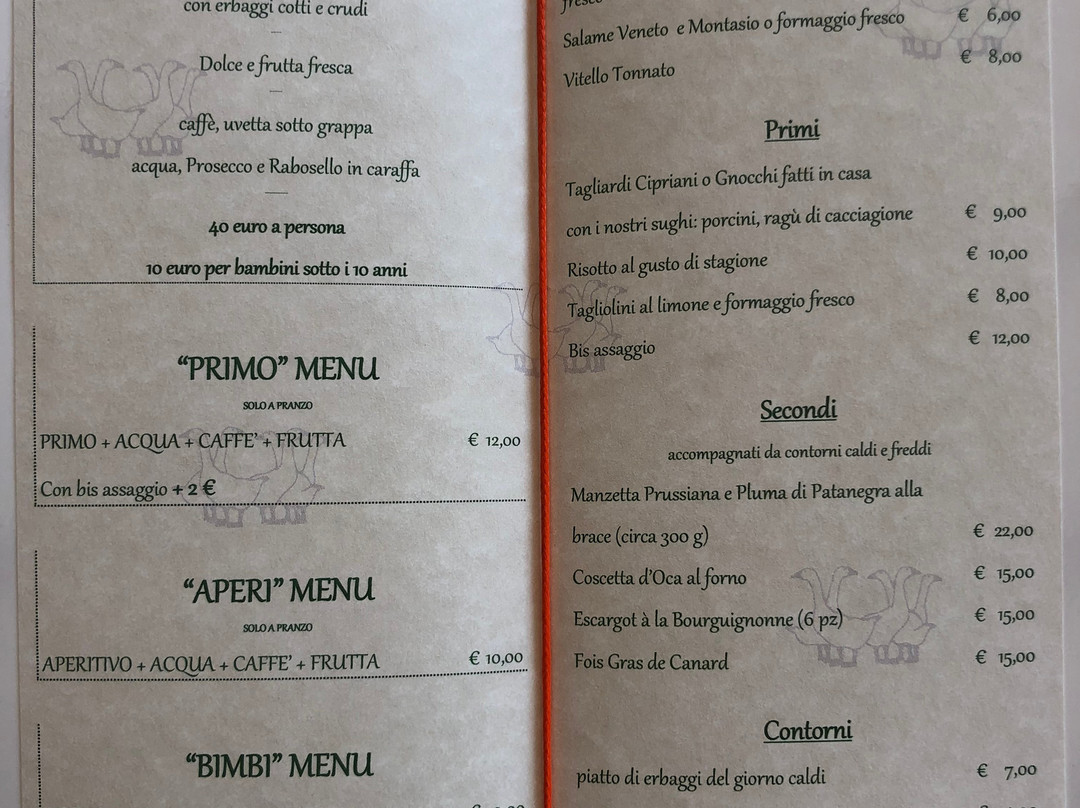 con erbaggi cotti e crudi
Dolce e frutta fresca
caffè, uvetta sotto grappa
acqua, Prosecco e Rabosello in caraffa
40 euro a persona
10 euro per bambini sotto i 10 anni
“PRIMO” MENU
SOLO A PRANZO
PRIMO + ACQUA + CAFFE’ + FRUTTA € 12,00
Con bis assaggio + 2 €
“APERI” MENU
SOLO A PRANZO
APERITIVO + ACQUA + CAFFE’ + FRUTTA € 10,00
“BIMBI” MENU
fresco
Salame Veneto e Montasio o formaggio fresco € 6,00
Vitello Tonnato € 8,00
Primi
Tagliardi Cipriani o Gnocchi fatti in casa
con i nostri sughi: porcini, ragù di cacciagione € 9,00
Risotto al gusto di stagione € 10,00
Tagliolini al limone e formaggio fresco € 8,00
Bis assaggio € 12,00
Secondi
accompagnati da contorni caldi e freddi
Manzetta Prussiana e Pluma di Patanegra alla
brace (circa 300 g) € 22,00
Coscetta d’Oca al forno € 15,00
Escargot à la Bourguignonne (6 pz) € 15,00
Fois Gras de Canard € 15,00
Contorni
piatto di erbaggi del giorno caldi € 7,00